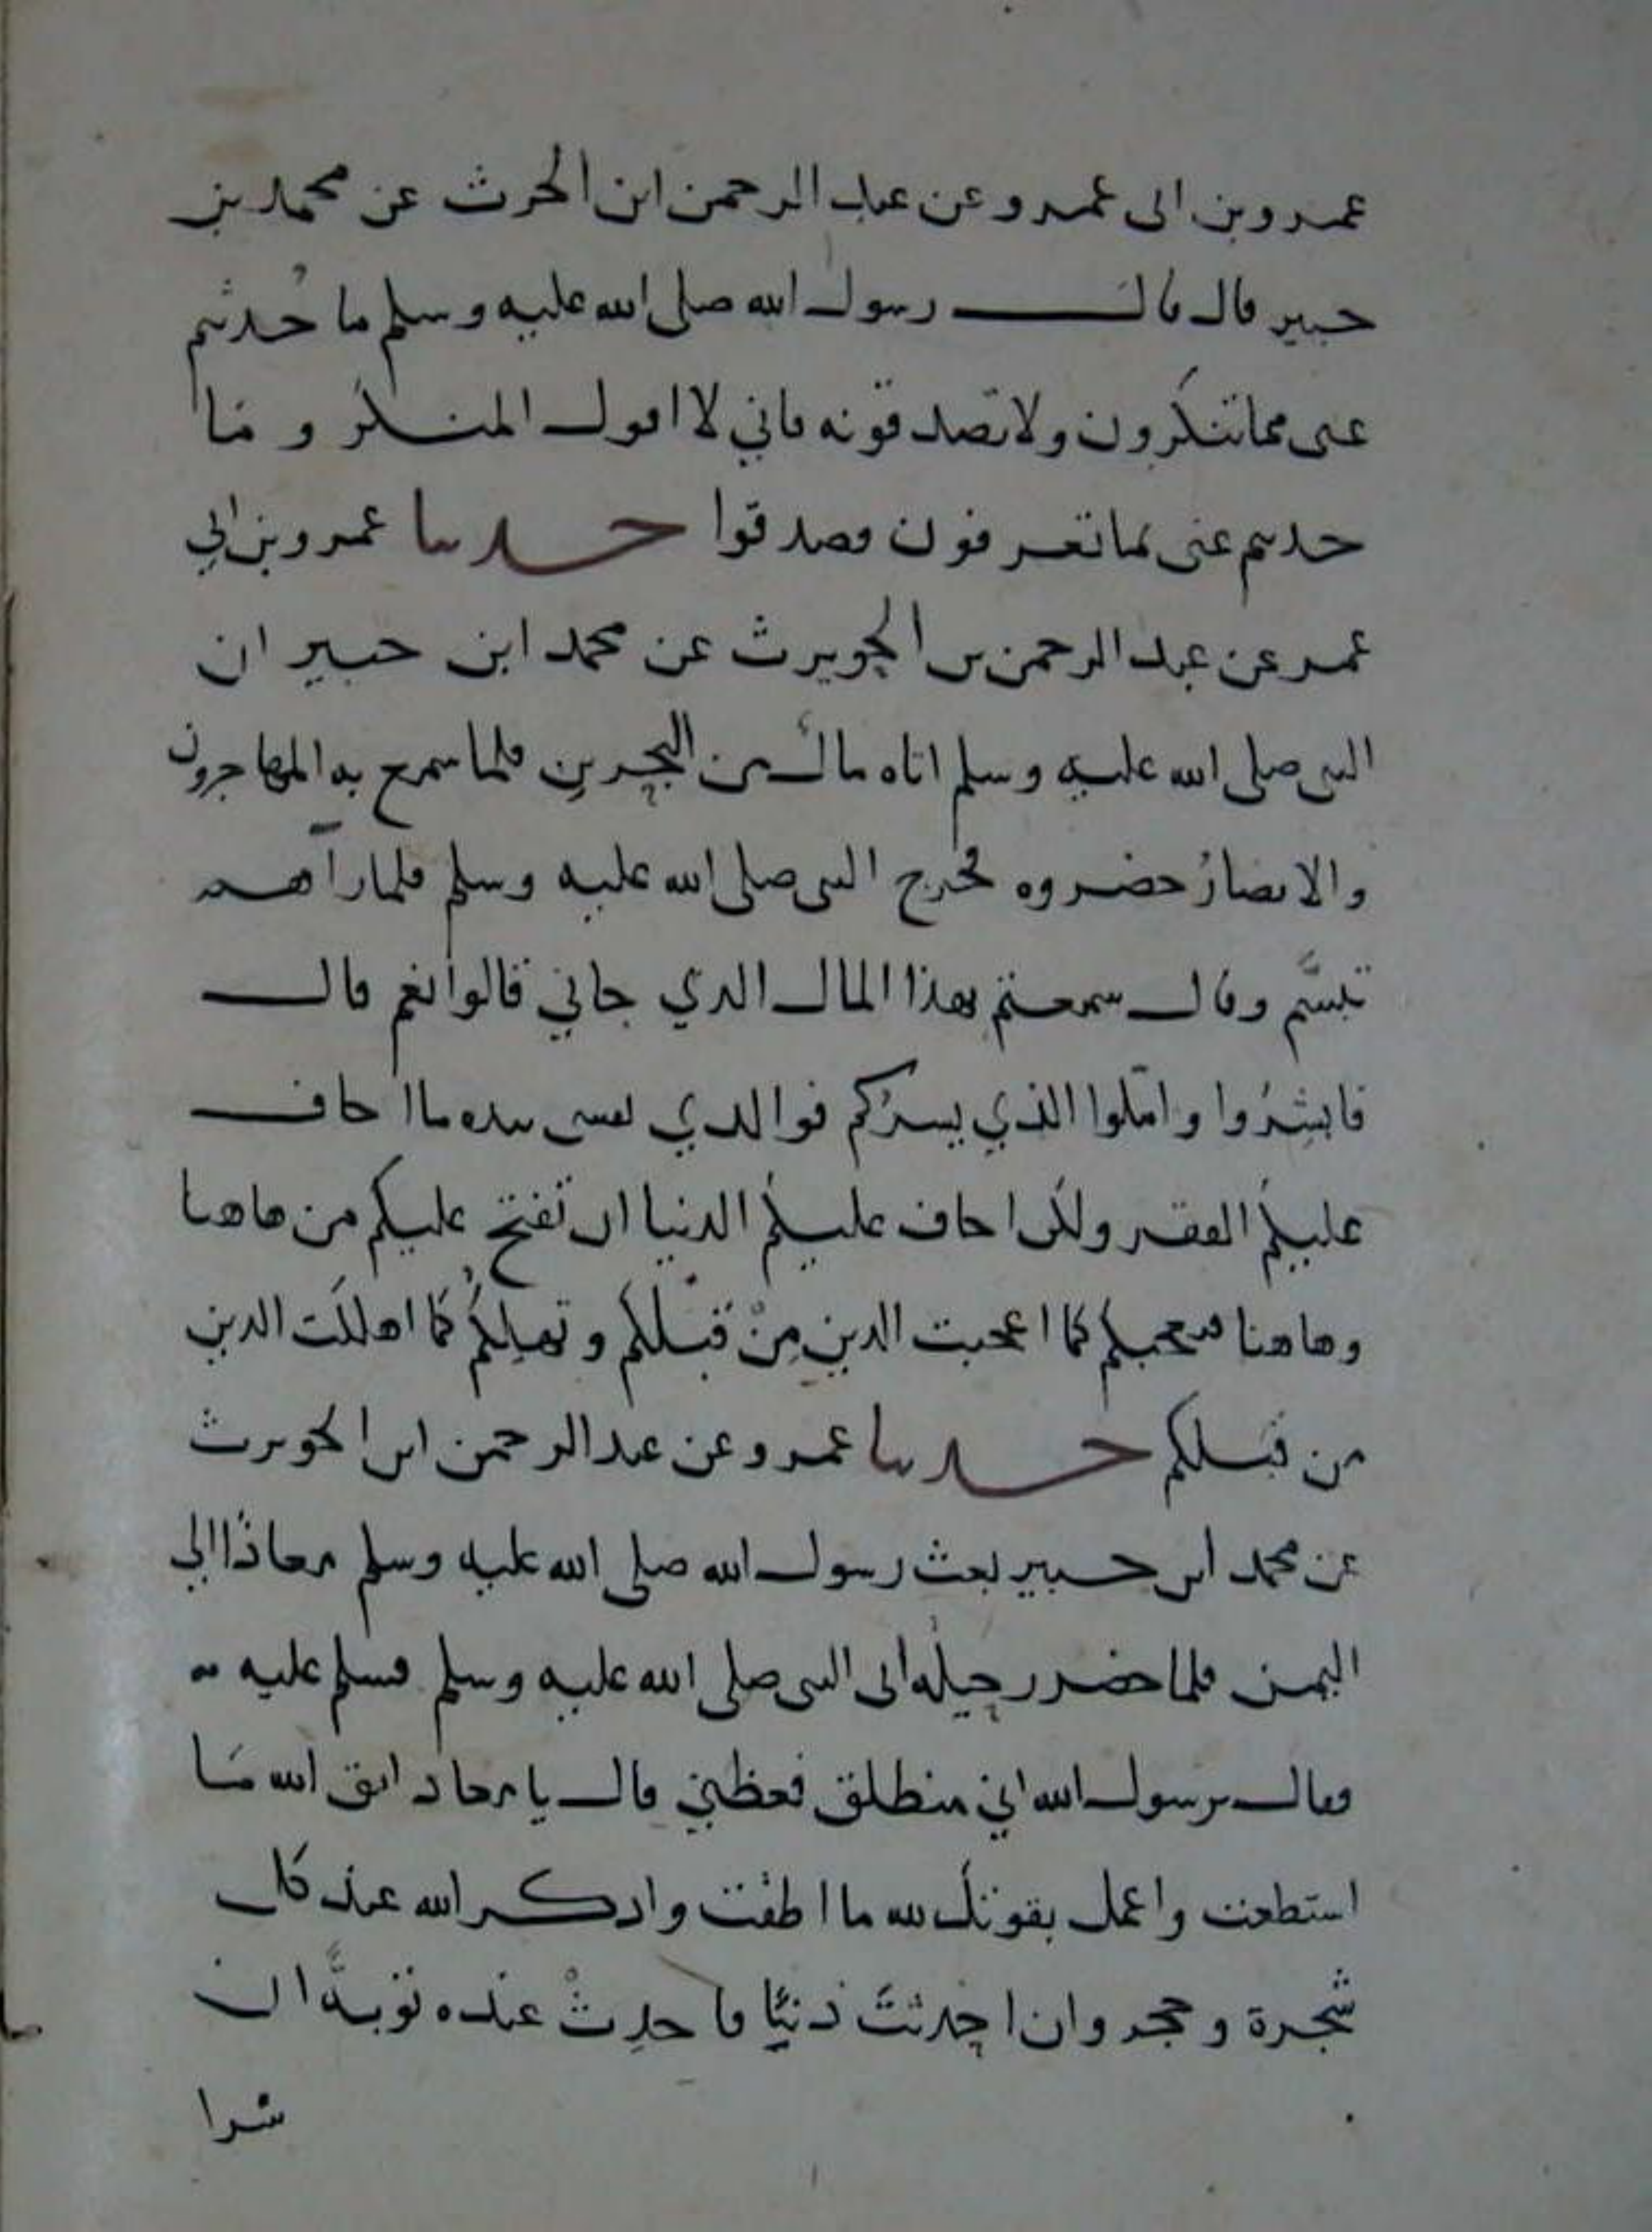 عمرو بن ابى عمرو عن عبد الرحمن ابن الحرث عن محمد بن
جبير قال قال رسول الله صلى الله عليه وسلم ما حُدثتم
عنى مما تنكرون ولا تصدقونه فاني لا اقول المنكر وما
حدثتم عنى بما تعرفون فصدقوا حدثنا عمرو بن ابي
عمر عن عبد الرحمن بن الحويرث عن محمد ابن جبير ان
النبى صلى الله عليه وسلم اتاه مال من البحرين فلما سمع به المهاجرون
والانصارُ حضروه فخرج النبى صلى الله عليه وسلم فلما رآهم
تبسَّم وقال سمعتم بهذا المال الذي جاني قالوا نعم قال
فابشِرُوا واملوا الذي يسرُكم فوالذي نفسى بيده ما اخاف
عليكم الفقر ولكن اخاف عليكم الدنيا ان تفتح عليكم من هاهنا
وهاهنا فتعجبكم كما اعجبت الذين مِنْ قبْلكم وتهلِكُكم كما اهلكت الذين
من قبلكم حدثنا عمرو عن عبد الرحمن ابن الحويرث
عن محمد ابن جبير بعث رسول الله صلى الله عليه وسلم معاذًا الي
اليمن فلما حضر رحيله اتى النبى صلى الله عليه وسلم فسلم عليه
فقال يرسول الله اني منطلق فعظني قال يا معاذ اتق الله مَا
استطعت واعمل بقوتك لله ما اطقت واذكر الله عند كل
شجرة وحجر وان احدثتَ ذنبًا فاحدِثْ عنده توبةً ان
شرا